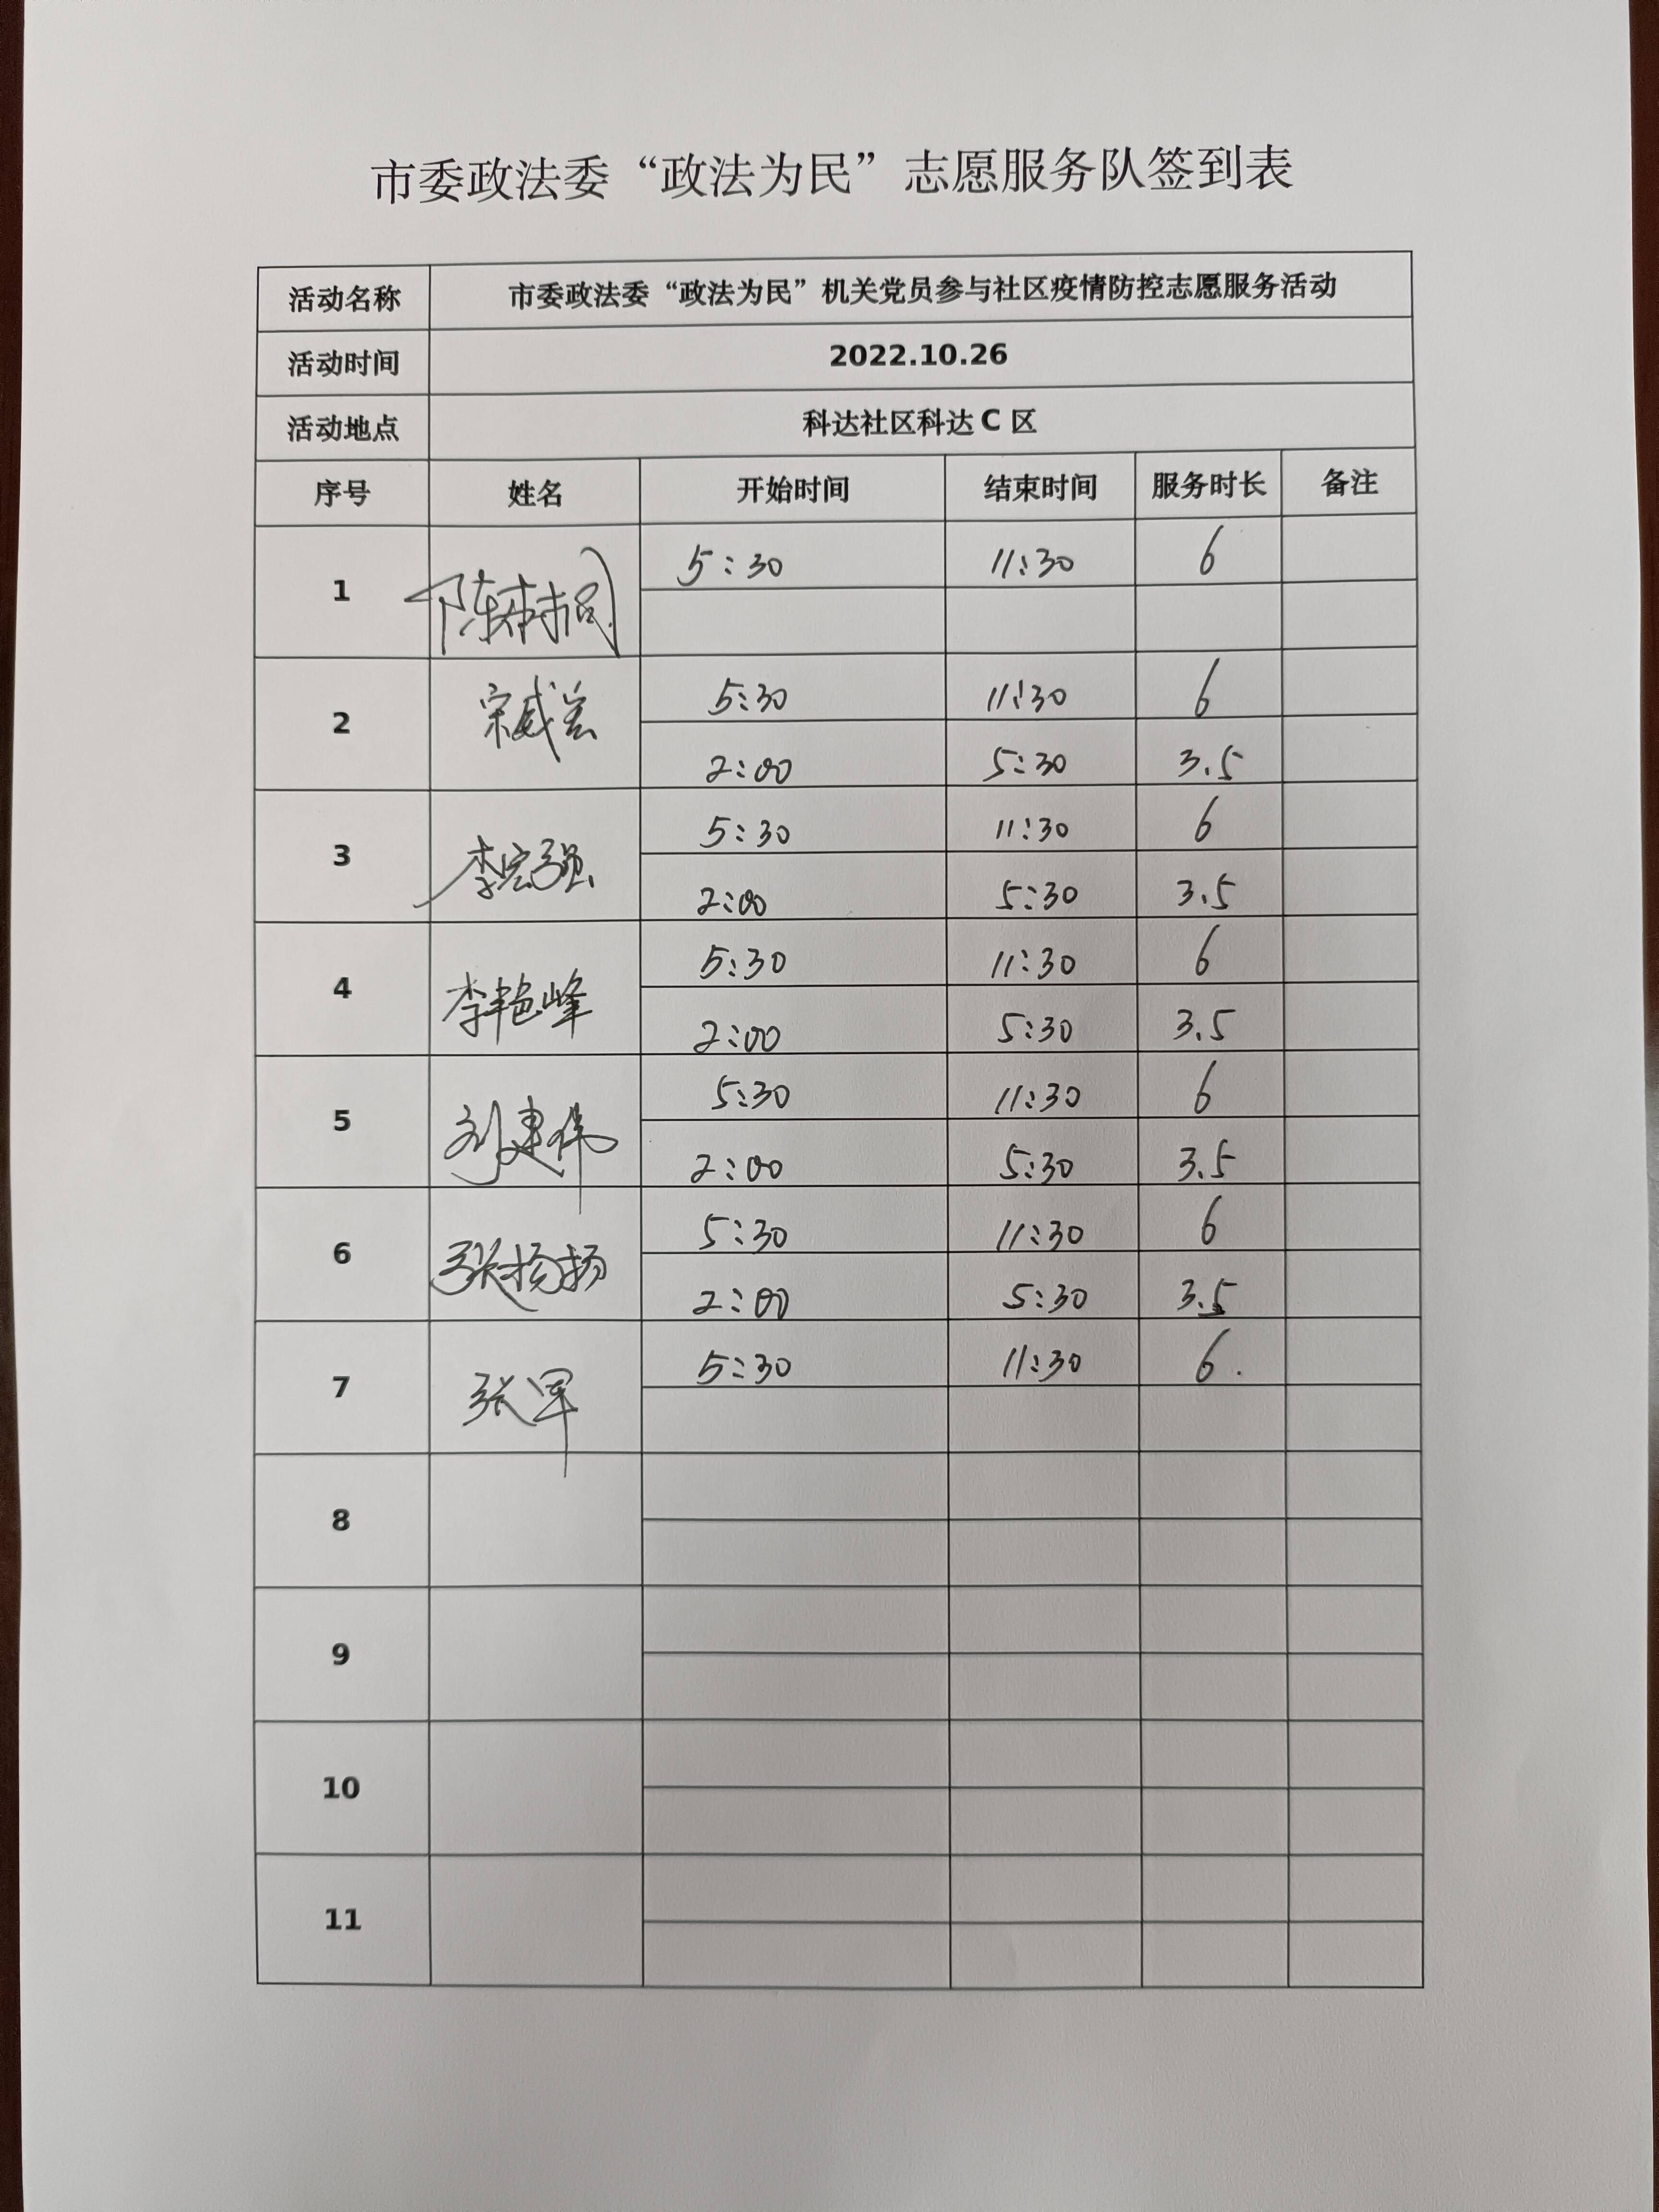 市委政法委“政法为民”志愿服务队签到表
活动名称 市委政法委“政法为民”机关党员参与社区疫情防控志愿服务活动
活动时间 2022.10.26
活动地点 科达社区科达C区
序号 姓名 开始时间 结束时间 服务时长 备注
1 陈 5:30 11:30 6
2 宋威 5:30 11:30 6
2:00 5:30 3.5
3 李宏强 5:30 11:30 6
2:00 5:30 3.5
4 李艳峰 5:30 11:30 6
2:00 5:30 3.5
5 刘建伟 5:30 11:30 6
2:00 5:30 3.5
6 张杨扬 5:30 11:30 6
2:00 5:30 3.5
7 张军 5:30 11:30 6.
8
9
10
11